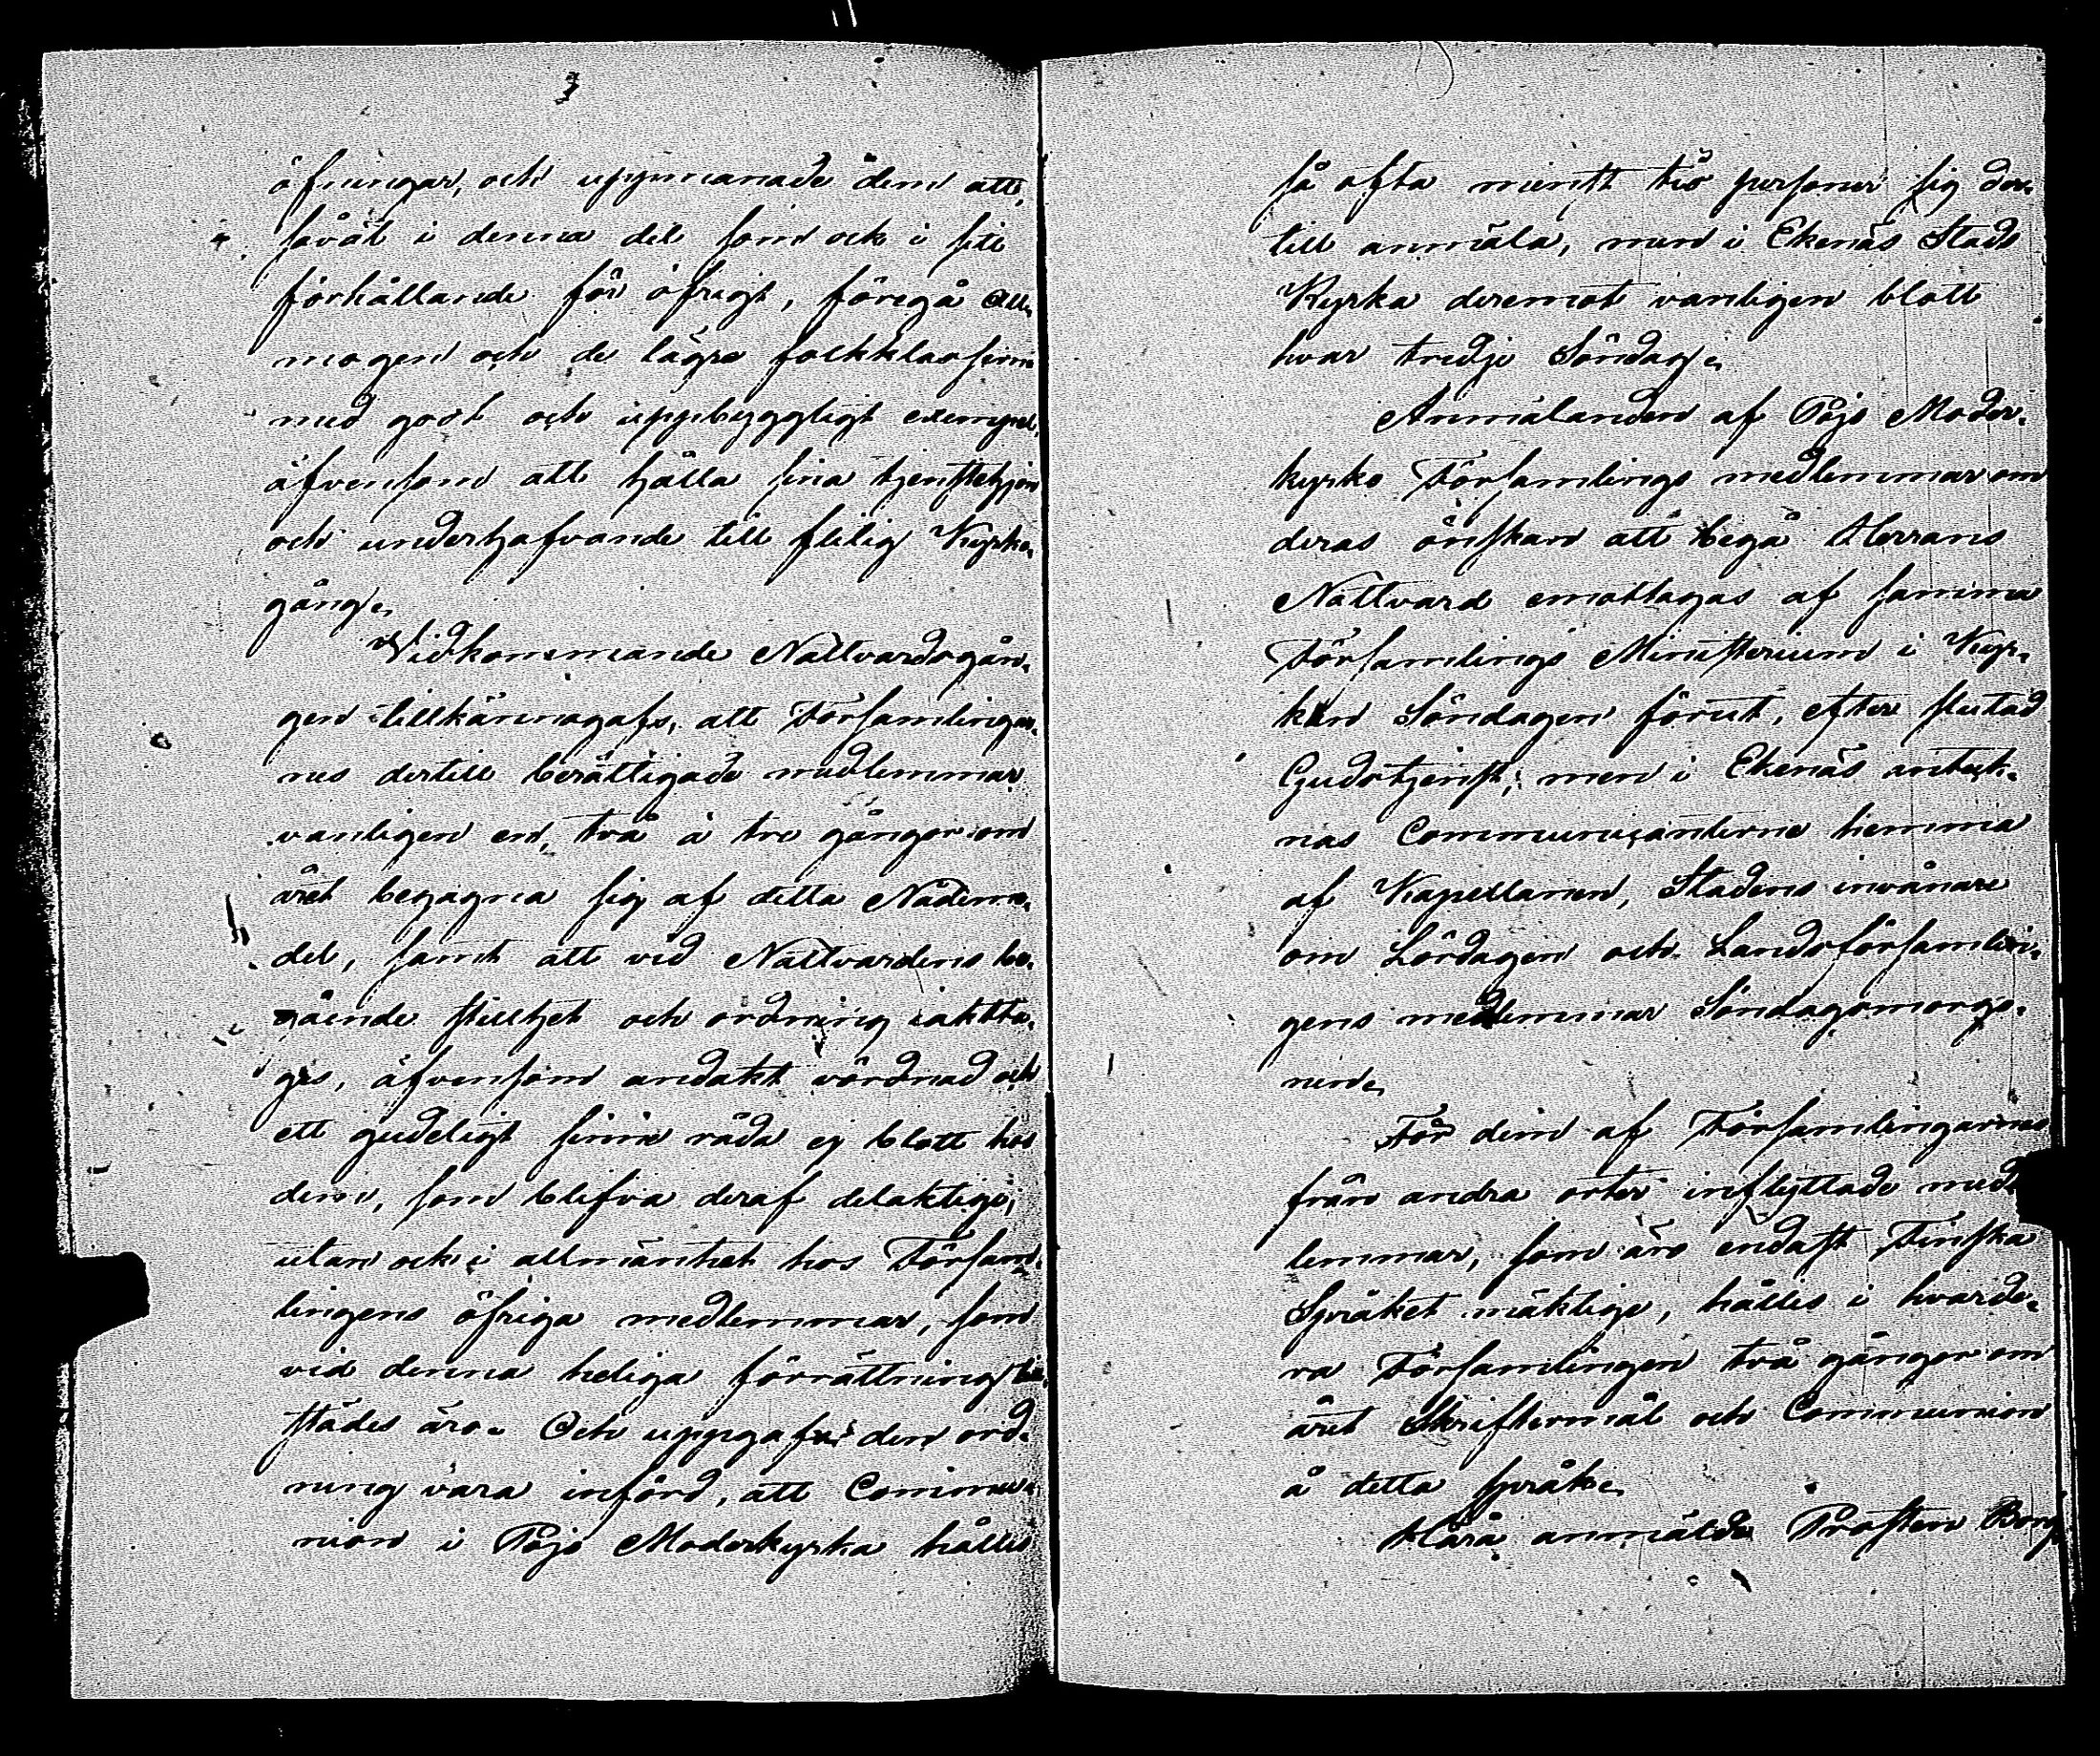 öfningar, och uppmanade dem att,
såväl i denna del som ock i sitt
förhållande för öfrigt, föregå all-
mogen och de lägre folkklasserne
med godt och uppbyggligt exempel,
äfvensom att hålla sina tjenstehjon
och underhafvande till flitig Kyrko-
gång.
Vidkommande Nattvardsgån-
gen tillkännagafs, att Församlingar-
nes dertill berättigade medlemmar
vanligen en, två à tre gånger om
året begagna sig af detta Nådeme-
del, samt att vid Nattvardens be-
gående stillhet och ordning iaktta-
ges, äfvensom andakt vördnad och
ett gudeligt sinne råda ej blott hos
dem, som blifva deraf delaktige,
utan ock i allmänhet hos Försam-
lingens öfriga medlemmar, som
vid denna heliga förrättning till-
städes äro. Och uppgafs den ord-
ning vara införd, att Commu-
nion i Pojo Moderkyrka hålles
så ofta minst tio personer sig der-
till anmäla, men i Ekenäs Stads
Kyrka deremot vanligen blott
hvar tredje Söndag.
Anmälanden af Pojo Moder-
kyrko Församlings medlemmar om
deras önskan att begå Herrans
Nattvard emottagas af samma
Församlings Ministerium i Kyr-
kan Söndagen förut, efter slutad
Gudstjenst; men i Ekenäs anteck-
nas Communicanterne hemma
af Kapellanen, Stadens invånare
om Lördagen och Landsförsamlin-
gens medlemmar Söndagsmorgo-
nen.
För dem af Församlingarnes
från andra orter inflyttade med-
lemmar, som äro endast Finska
Språket mäktige, hålles i hvarde-
ra Församlingen två gånger om
året Skriftermål och Communion
å detta språk.
Härå anmälde Prosten Borg